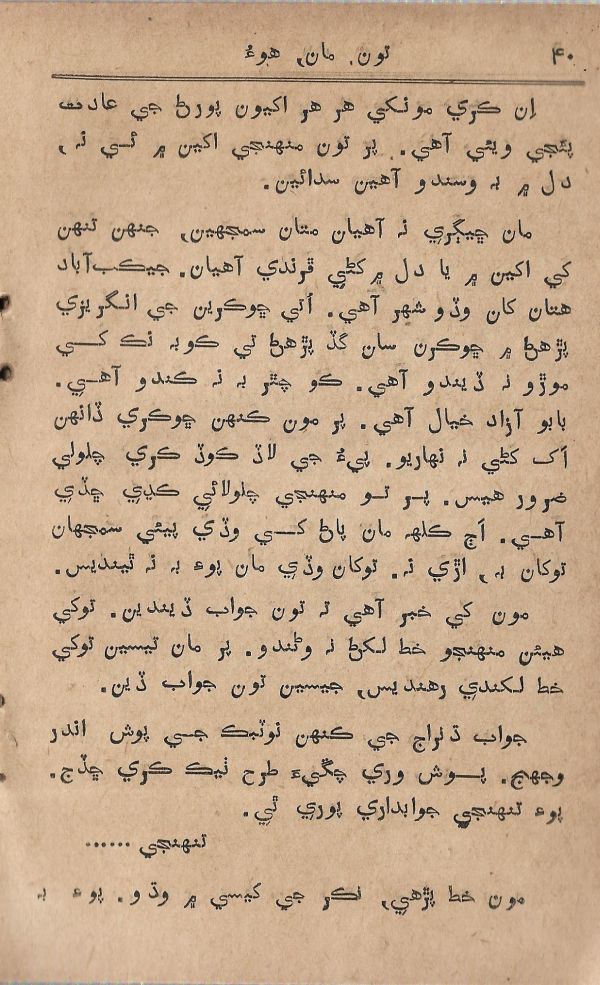 ۴۰ تون. مان, هوءُ
اِن ڪري مونکي هر هر اکيون پورڻ جي عادت
پئجي ويئي آهي. پر تون منهنجي اکين ۾ ئي نہ,
دل ۾ بہ وسندو آهين سدائين.
مان ڇيڳري نہ آهيان متان سمجهين, جنهن تنهن
کي اکين ۾ يا دل ۾ کڻي ڦرندي آهيان. جيڪب‌آباد
هتان کان وڏو شهر آهي. اُتي ڇوڪرين جي انگريزي
پڙهڻ ۾ ڇوڪرن سان گڏ پڙهڻ تي ڪوبہ نڪ کي
موڙو نہ ڏيندو آهي. ڪو چٿر بہ نہ ڪندو آهي.
بابو آزاد خيال آهي. پر مون ڪنهن ڇوڪري ڏانهن
اَک کڻي نہ نهاريو. پيءُ جي لاڏ ڪوڏ ڪري چلولي
ضرور هيس. پر تو منهنجي چلولائي ڪڍي ڇڏي
آهي. اَڄ ڪلهہ مان پاڻ کي وڏي پيئي سمجهان
توکان بہ, اڙي نہ. توکان وڏي مان پوءِ بہ نہ ٿينديس.
مون کي خبر آهي تہ تون جواب ڏيندين. توکي
هيئن منهنجو خط لکڻ نہ وڻندو. پر مان تيسين توکي
خط لکندي رهنديس, جيسين تون جواب ڏين.
جواب ڌنراج جي ڪنهن نوٽبڪ جي پوش اندر
وجهج. پوش وري چڱيءَ طرح ٺيڪ ڪري ڇڏج.
پوءِ تنهنجي جوابداري پوري ٿي.
تنهنجي ......
مون خط پڙهي, نڪر جي کيسي ۾ وڌو. پوءِ بہ